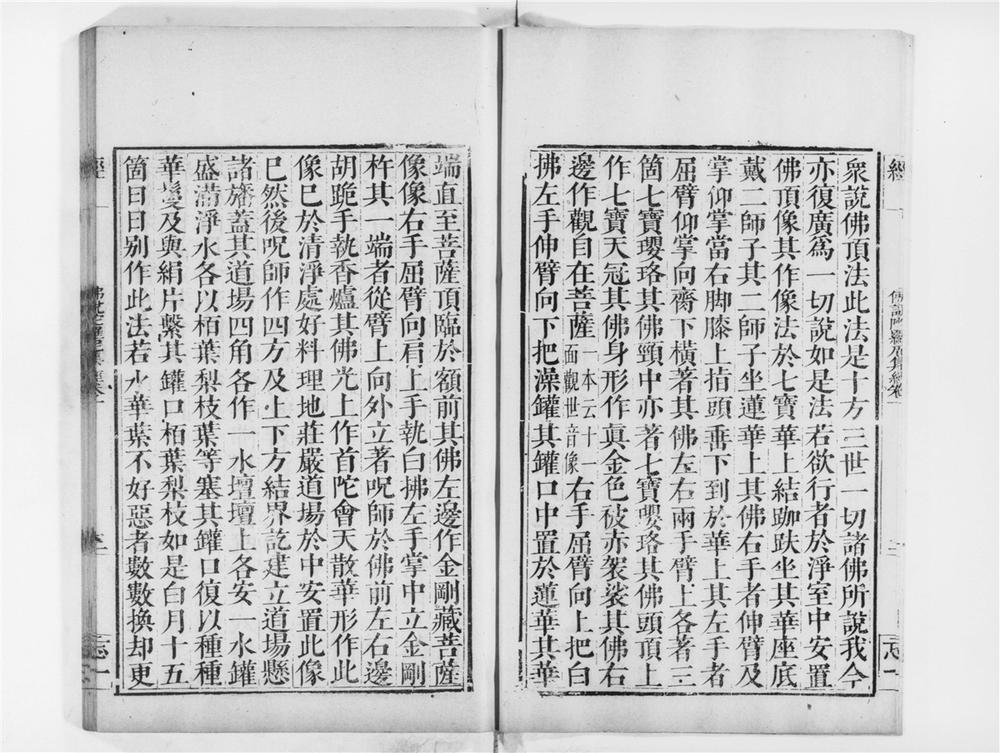 衆說佛頂法此法是十方三世一切諸佛所說我今
亦復廣爲一切說如是法若欲行者於淨室中安置
佛頂像其作像法於七寶華上結跏趺坐其華座底
戴二師子其二師子坐蓮華上其佛右手者伸臂及
掌仰掌當右脚膝上指頭垂下到於華上其左手者
屈臂仰掌向臍下橫著其佛左右兩手臂上各著三
箇七寶瓔珞其佛頸中亦著七寶瓔珞其佛頭頂上
作七寶天冠其佛身形作眞金色被赤袈裟其佛右
邊作觀自在菩薩一本云十一面觀世音像右手屈臂向上把白
拂左手伸臂向下把澡罐其罐口中置於蓮華其華
端直至菩薩頂臨於額前其佛左邊作金剛藏菩薩
像像右手屈臂向肩上手執白拂左手掌中立金剛
杵其一端者從臂上向外立著呪師於佛前左右邊
胡跪手執香爐其佛光上作首陀會天散華形作此
像已於清淨處好料理地莊嚴道場於中安置此像
已然後呪師作四方及上下方結界訖建立道場懸
諸旛蓋其道場四角各作一水壇壇上各安一水罐
盛滿淨水各以栢葉梨枝葉等塞其罐口復以種種
華鬘及與絹片繫其罐口栢葉梨枝如是白月十五
箇日日別作此法若水華葉不好惡者數數換却更
經
佛說陀羅尼集經卷一